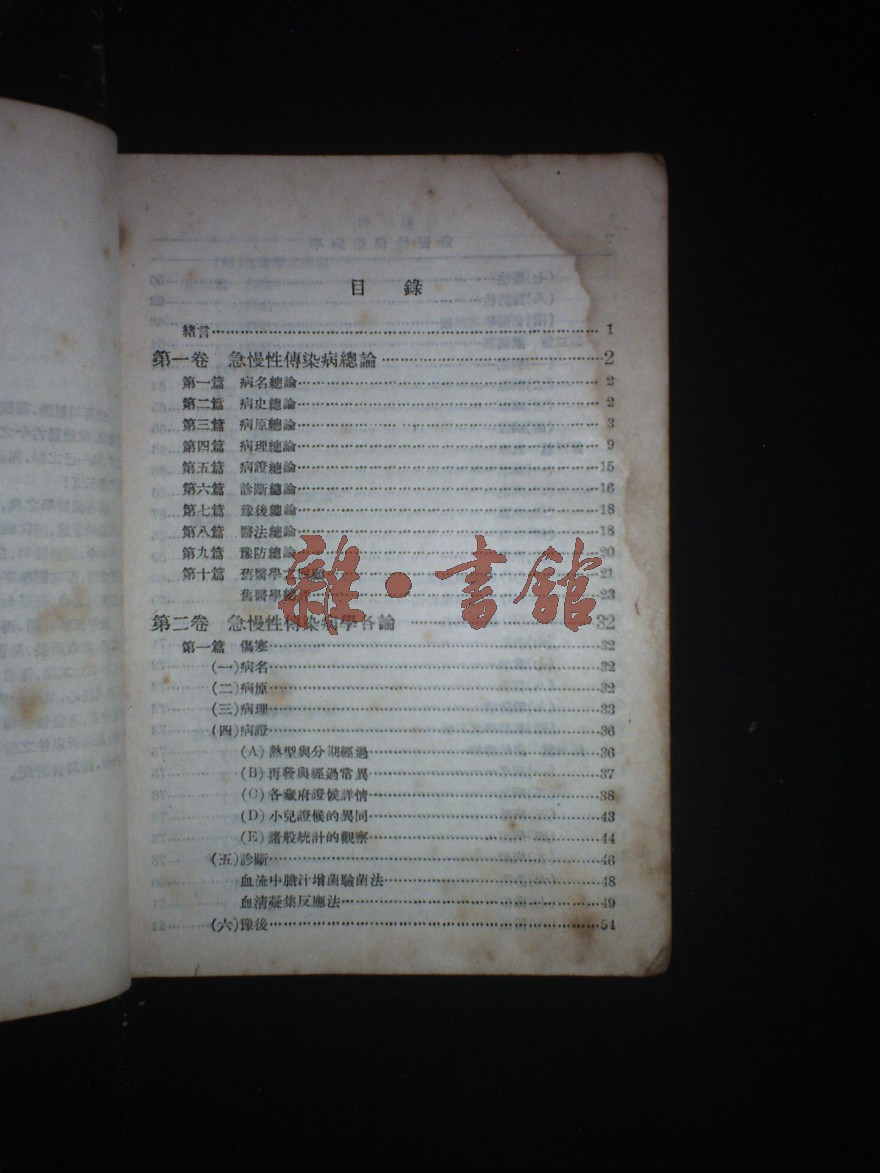 目 錄
緒言 1
第一卷 急慢性傳染病總論 2
第一篇 病名總論 2
第二篇 病史總論 2
第三篇 病原總論 3
第四篇 病理總論 9
第五篇 病證總論 15
第六篇 診斷總論 16
第七篇 豫後總論 18
第八篇 醫法總論 18
第九篇 豫防總論 20
第十篇 舊醫學 21
舊醫學 23
雜·書館
第二卷 急慢性傳染病學各論 32
第一篇 傷寒 32
(一)病名 32
(二)病原 32
(三)病理 33
(四)病證 36
(A)熱型與分期經過 36
(B)再發與經過常異 37
(C)各藏府證候詳情 38
(D)小兒證候的異同 43
(E)諸般統計的觀察 44
(五)診斷 46
血流中膽汁增菌驗菌法 48
血清凝集反應法 49
(六)豫後 54